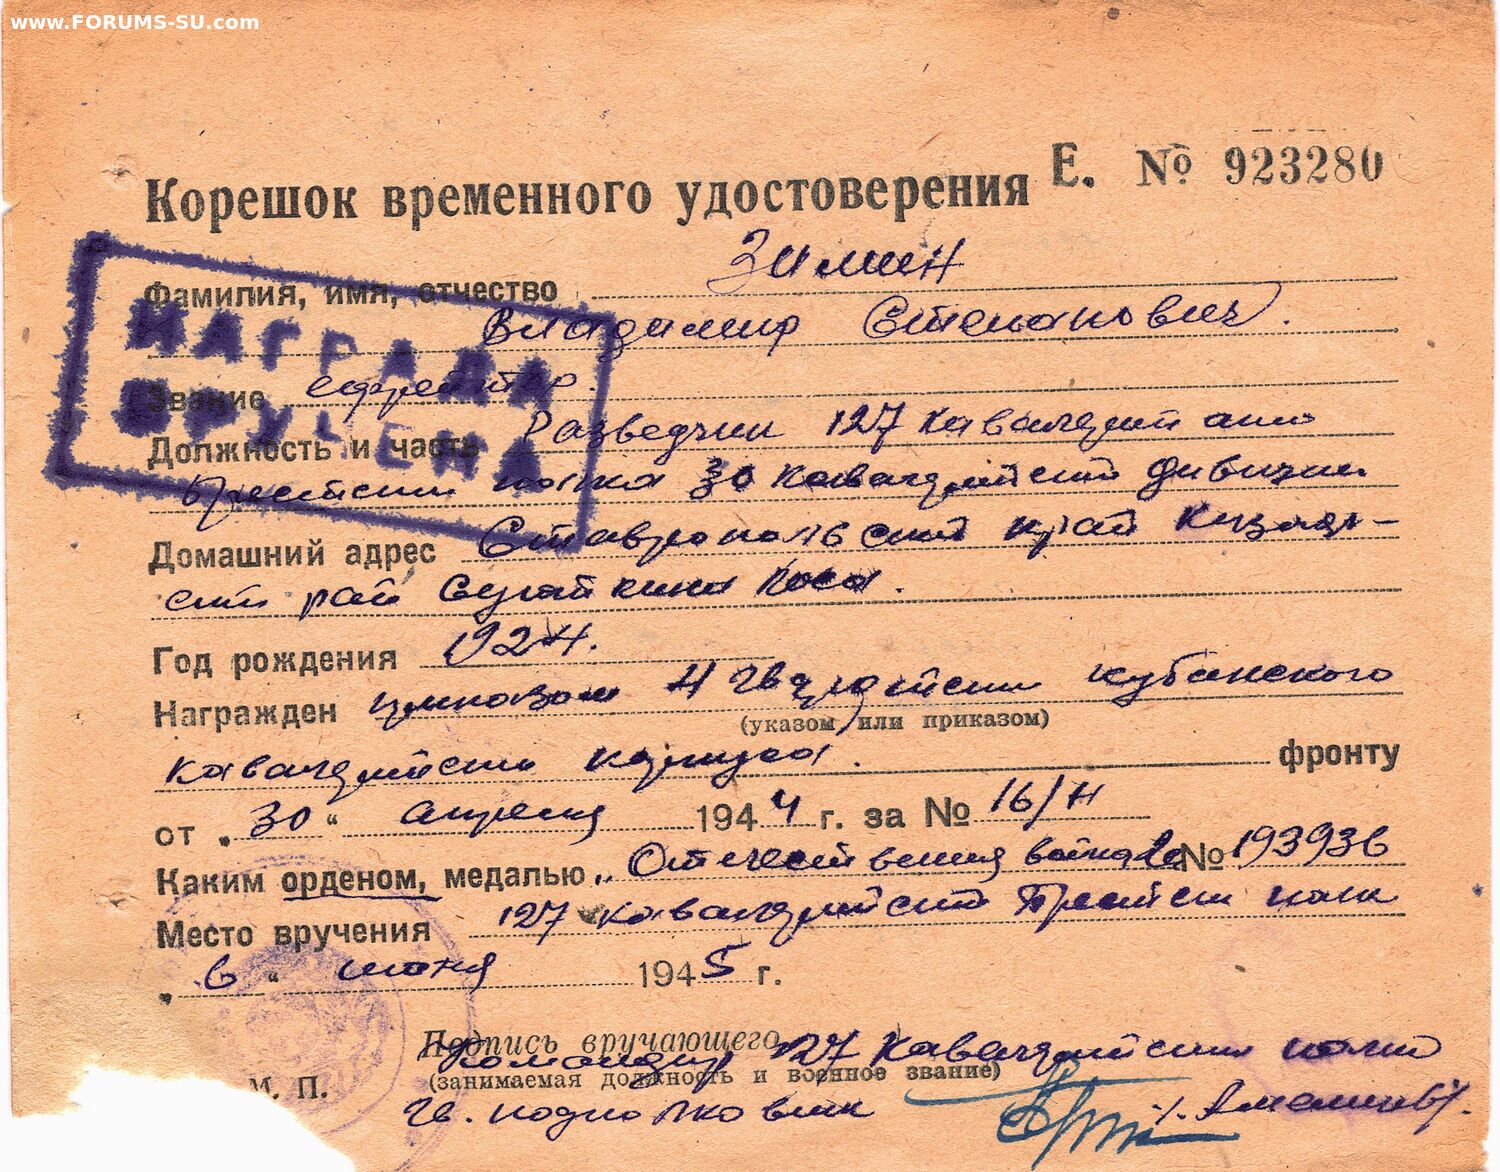 www.FORUMS-SU.com
Корешок временного удостоверения Е. № 923280
Фамилия, имя, отчество Зимин
Владимир Степанович.
НАГРАДА
ВРУЧЕНА
Звание ефрейтор.
Должность и часть Разведчик 127 кавалерийского
полка 30 кавалерийской дивизии
Домашний адрес Ставропольский край Кизляр-
ский рай Коса.
Год рождения 1924.
Награжден приказом 4 гвардейский кубанского
(указом или приказом)
кавалерийский корпуса. фронту
от „ 30 “ апреля 1944 г. за № 16/н
Каким орденом, медалью „ Отечественная война 2с № 193936
Место вручения 127 кавалерийский Брестский полк
„ 6 “ июня 1945 г.
Подпись вручающего командир 127 кавалерийский полка
(занимаемая должность и военное звание)
М. П.
гв. подполковник